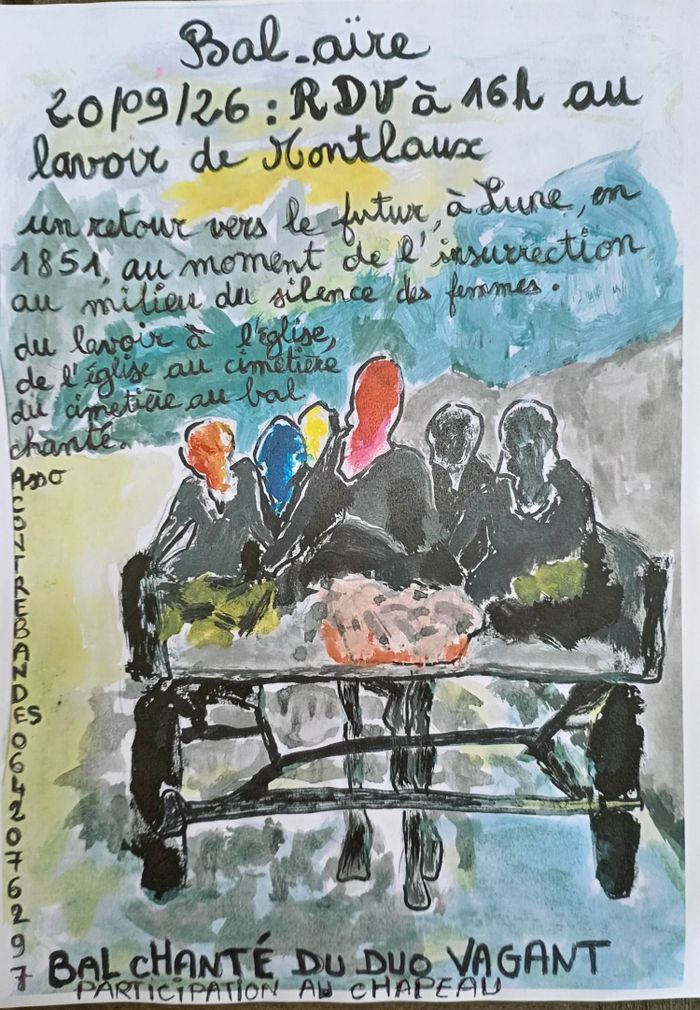 Bal-aïre
20/09/26 : RDV à 16h au
lavoir de Montlaux
un retour vers le futur, à Lune, en
1851, au moment de l'insurrection
au milieu du silence des femmes.
du lavoir à l'église,
de l'église au cimetière
du cimetière au bal
chanté.
Asso
CONTREBANDES 0642076297
BAL CHANTÉ DU DUO VAGANT
PARTICIPATION AU CHAPEAU